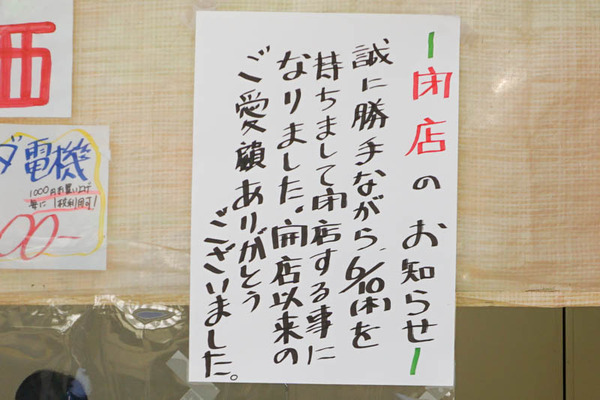 ー閉店のお知らせー
誠に勝手ながら、6/10(木)を
持ちまして閉店する事に
なりました。開店以来の
ご愛顧ありがとう
ございました。
価
ダ電機
1000円お買い上げ
毎に1枚利用可
00-